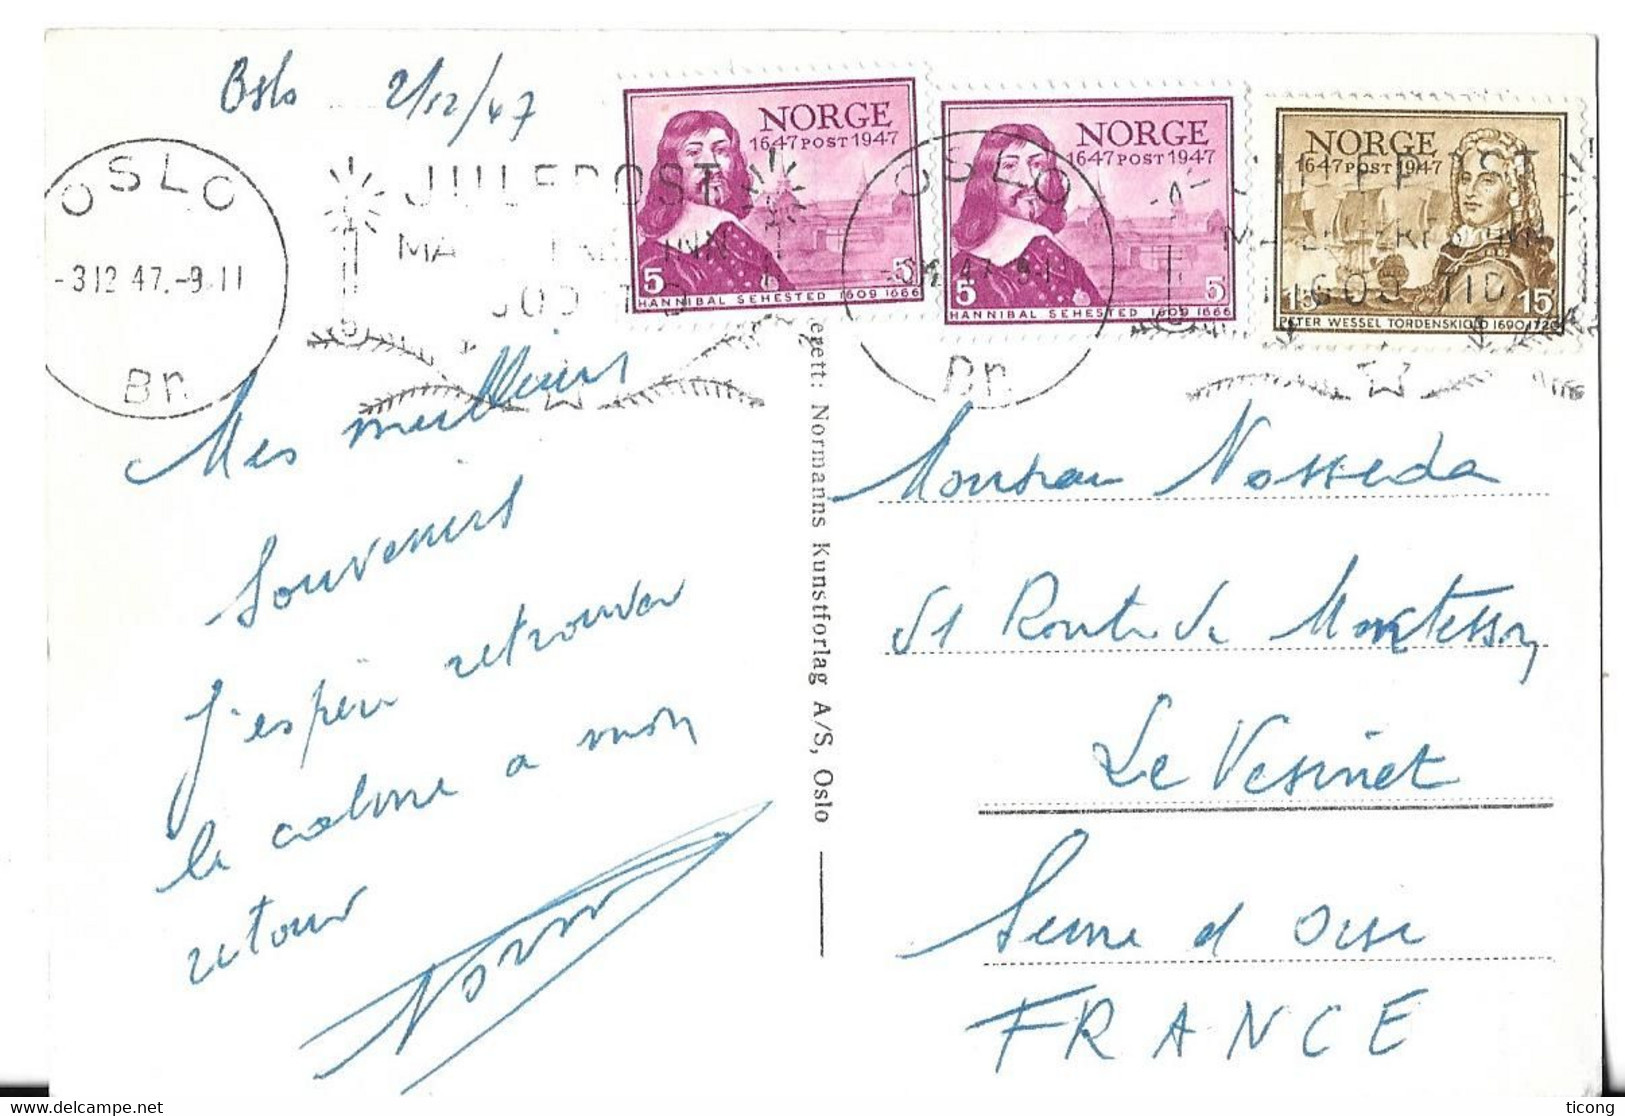 Oslo 2/12/47
NORGE
1647 POST 1947
5 5
HANNIBAL SEHESTED 1609 1666
NORGE
1647 POST 1947
5 5
HANNIBAL SEHESTED 1609 1666
NORGE
1647 POST 1947
15 15
PETER WESSEL TORDENSKIOLD 1690-1720
OSLO
-3.12.47.-9.11
Br.
JULEPOST
OSLO
Mes meilleurs
souvenirs
J'espère retrouver
le calme a mon
retour
erett: Normanns Kunstforlag A/S, Oslo
Monsieur Nosseda
51 Route de Montesson
Le Vesinet
Seine et Oise
FRANCE
delcampe.net
ticong